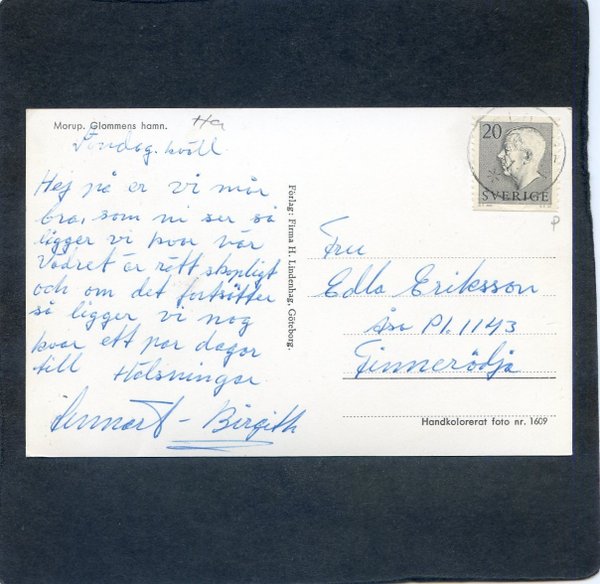 Morup. Glommens hamn.
Ha
Söndag. kväll.
Hej på er vi mår
bra, som ni ser så
ligger vi kvar vår
Vädret är rätt skapligt
och om det fortsätter
så ligger vi nog
kvar ett par dagar
till Hälsningar
Lennart - Birgith
Förlag: Firma H. Lindenhag, Göteborg.
20
SVERIGE
P
Fru
Edla Eriksson
Åsa Pl. 1143
Finnerödja
Handkolorerat foto nr. 1609